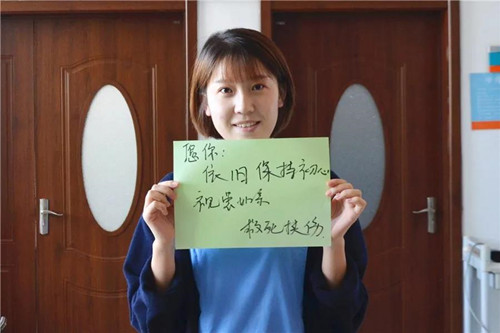 愿你:
依旧保持初心
视患如亲
救死扶伤